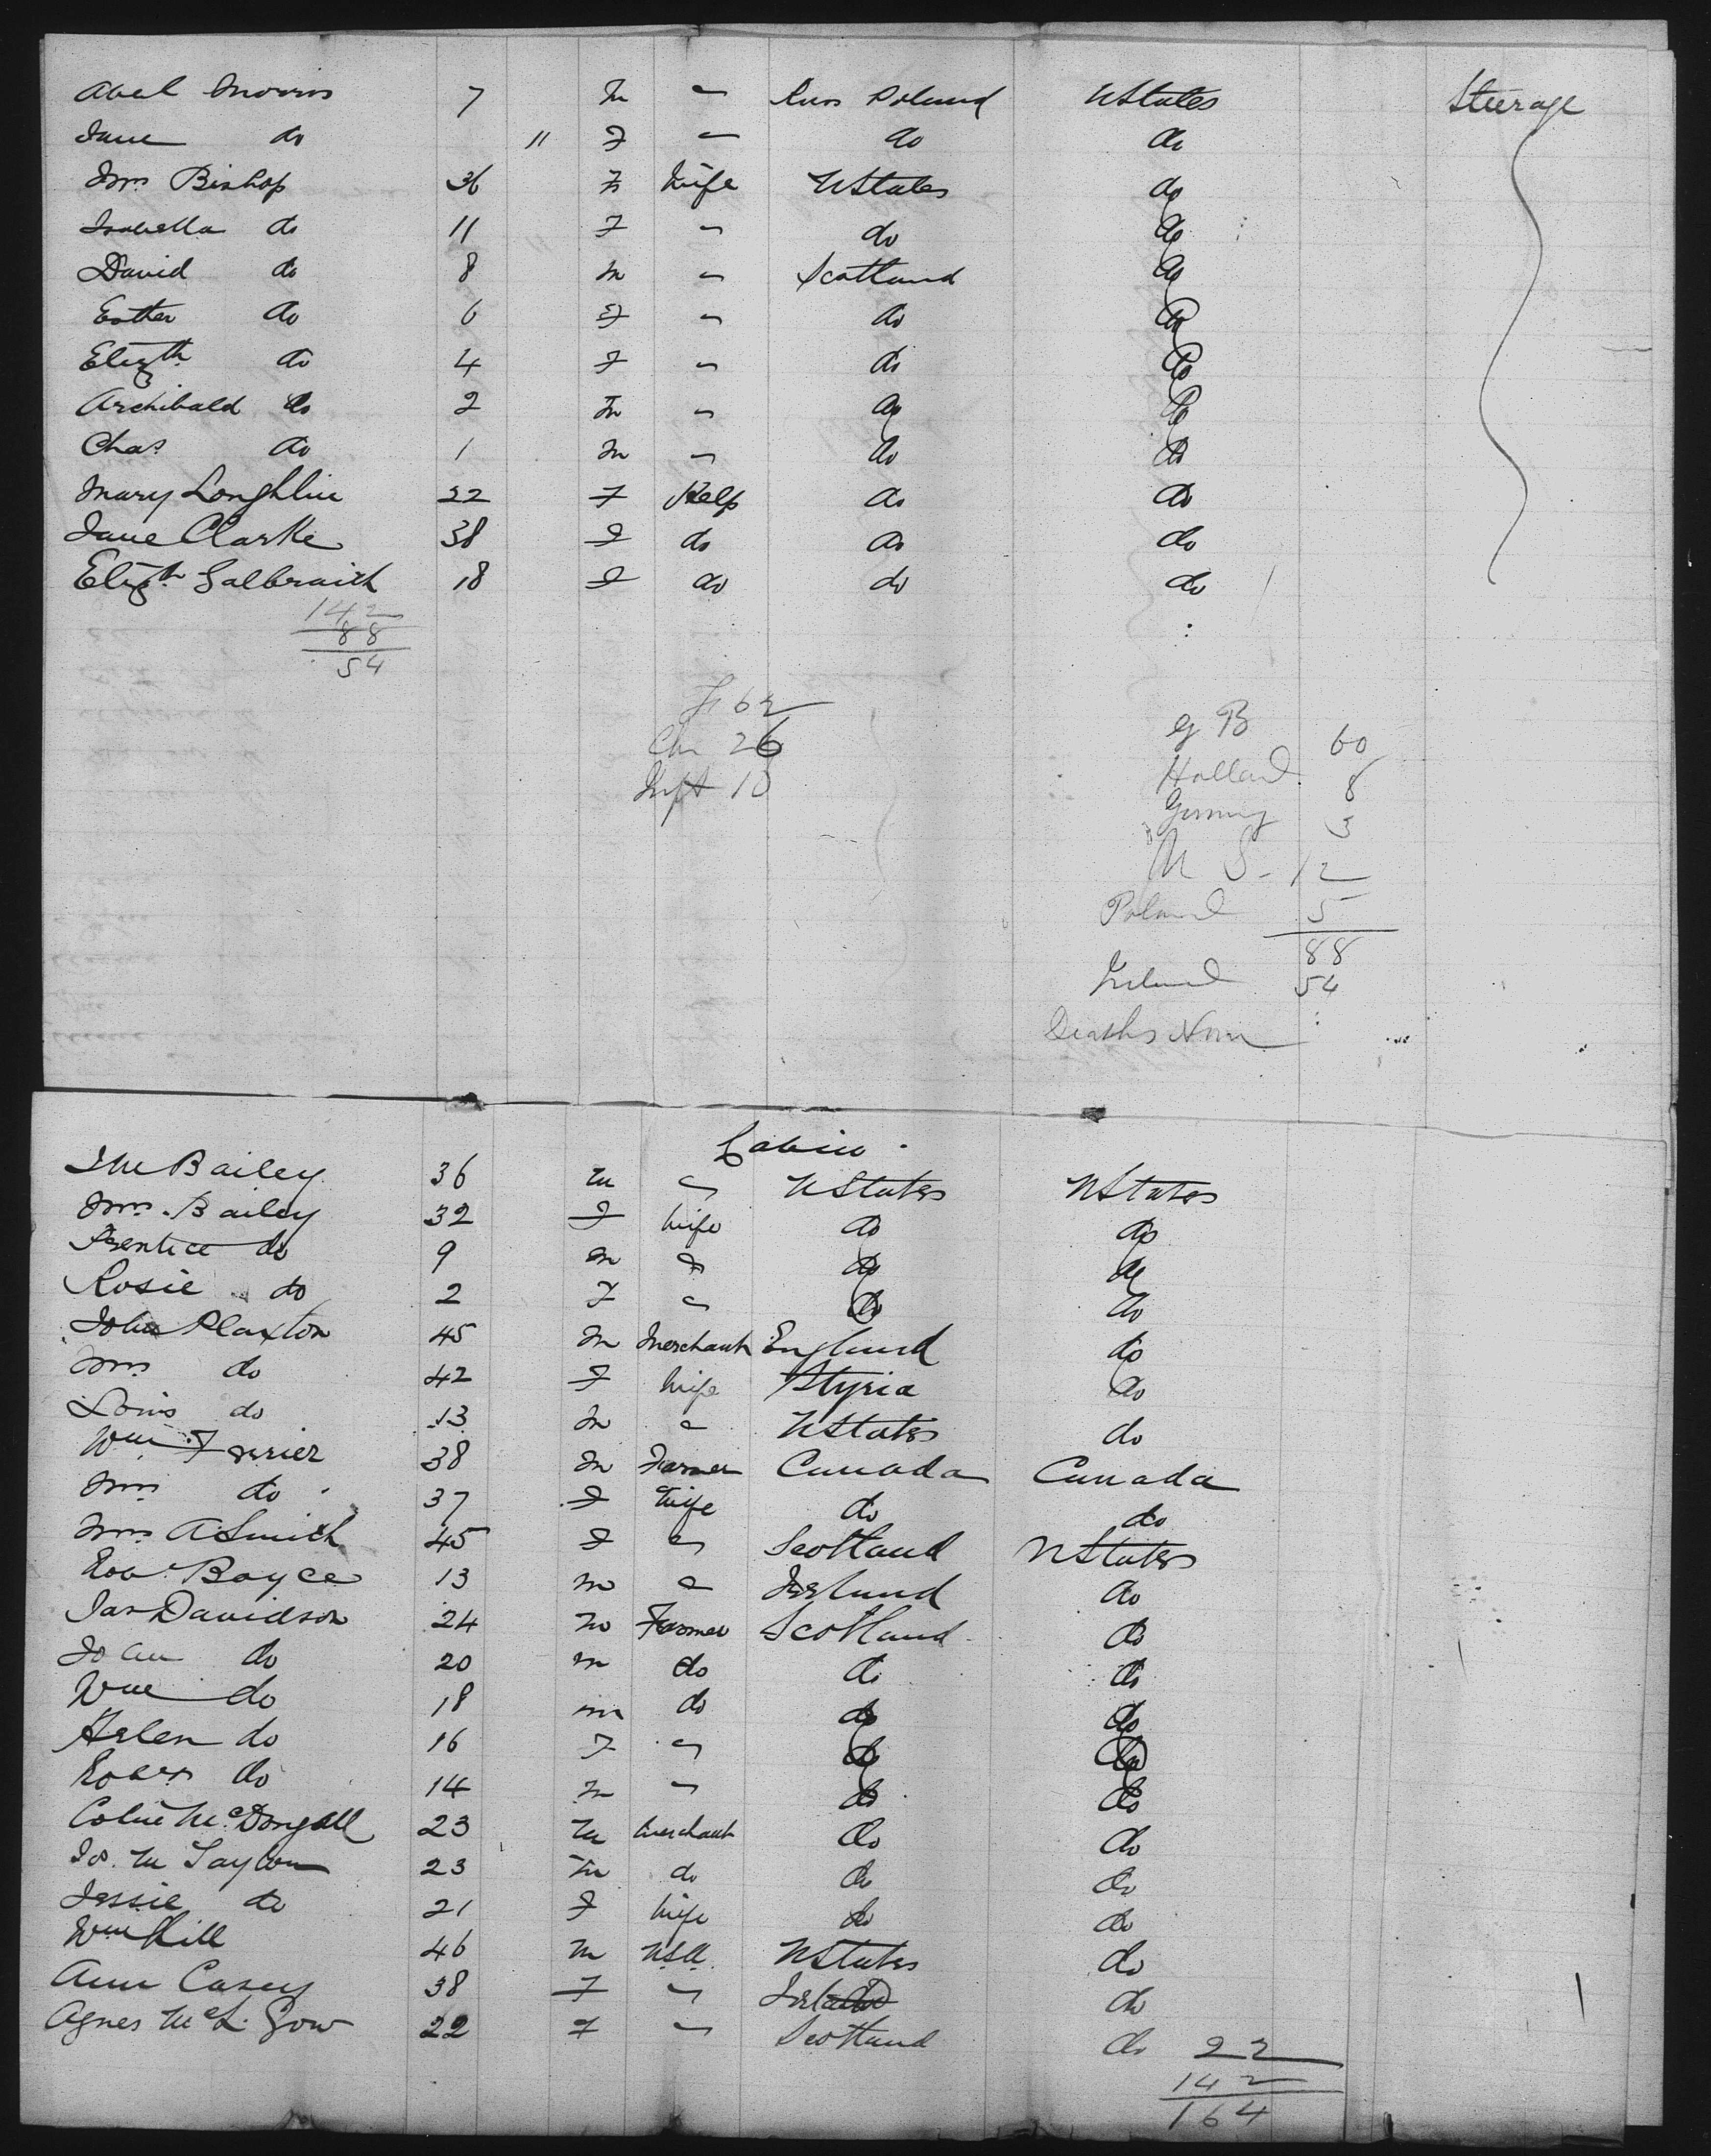 Abel Morris 7 M " Russ Poland UStates Steerage
Jane do 11 F " do do
Mrs Bishop 36 F Wife UStates do
Isabella do 11 F " do do
David do 8 M " Scotland do
Esther do 6 F " do do
Elizth do 4 F " do do
Archibald do 2 M " do do
Chas do 1 M " do do
Mary Loughlin 22 F Help do do
Jane Clarke 38 F do do do
Elizth Galbraith 18 F do do do
142
88
54
62
Ch 26
Inft 10
G B 60
Holland 8
Germy 3
U S - 12
Poland 5
88
Ireland 54
Deaths None
Cabin
Bailey 36 M " UStates UStates
Mrs. Bailey 32 F Wife do do
Prentice do 9 M " do do
Rosie do 2 F " do do
John Plaxton 45 M Merchant England do
Mrs do 42 F Wife Styria do
Louis do 13 M " UStates do
Wm Ferrier 38 M Farmer Canada Canada
Mrs do 37 F Wife do do
Mrs A Smith 45 F " Scotland UStates
Robt Boyce 13 M " Ireland do
Jas Davidson 24 M Farmer Scotland do
John do 20 M do do do
Wm do 18 M do do do
Helen do 16 F " do do
Robert do 14 M " do do
Colin McDongall 23 M Merchant do do
Jas. M Taylor 23 M do do do
Jessie do 21 F Wife do do
Wm Hill 46 M UStates do
Ann Casey 38 F " Ireland do
Agnes McL. Gow 22 F " Scotland do 22
142
164